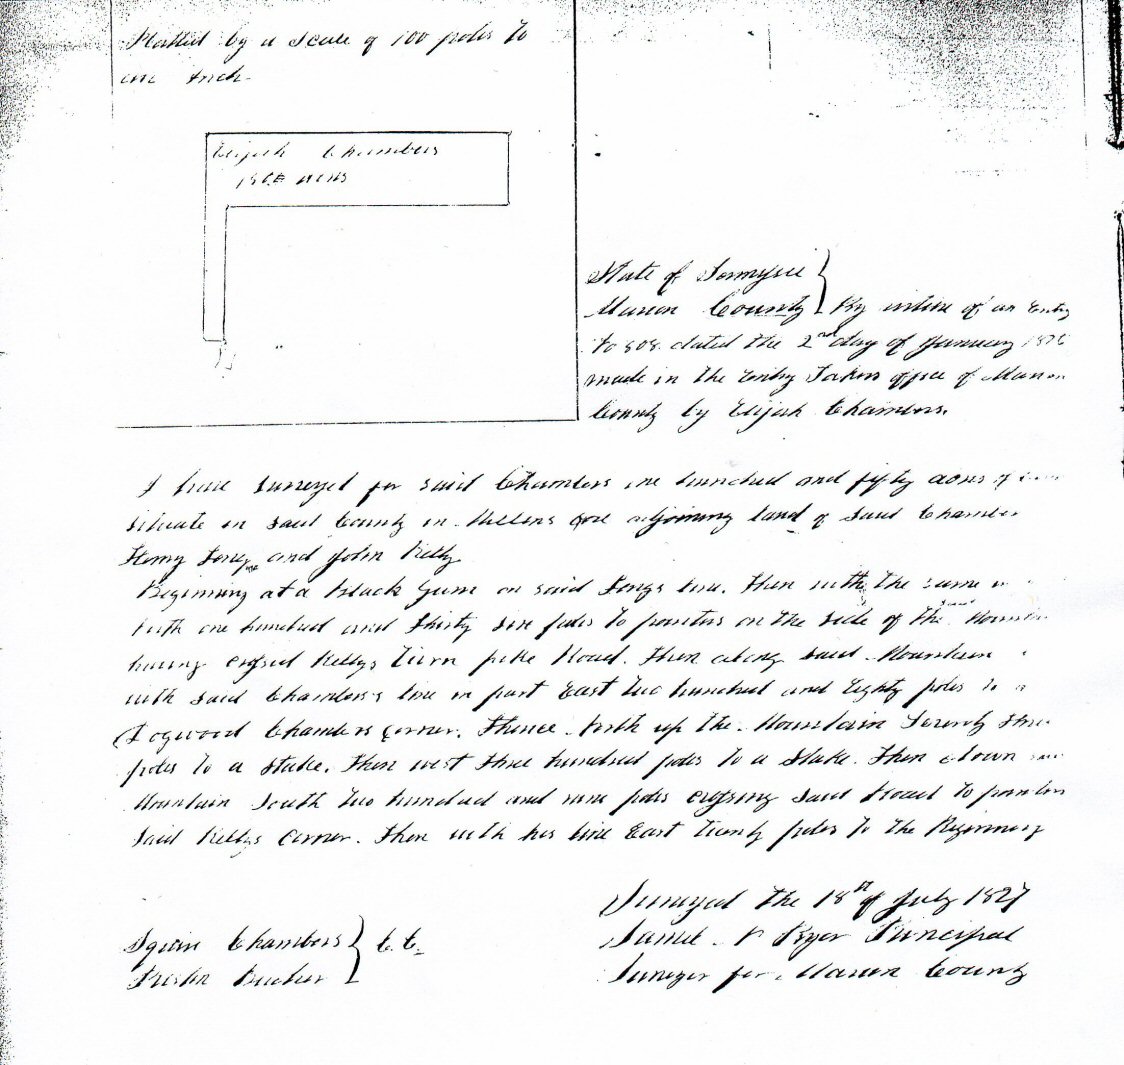 Platted by a scale of 100 poles to
one Inch
Elijah Chambers
150 acres
State of Tennessee
Marion County } By virtue of an Entry
No 808 dated the 2nd day of January 1826
made in the Entry Takers office of Marion
County by Elijah Chambers.
I have surveyed for said Chambers one hundred and fifty acres of
situate in said County in Cove adjoining land of said Chambers
Henry Long and John Kelly
Beginning at a black Gum on said Longs line. Then with the same
North one hundred and thirty six poles to pointers on the side of the said Mountain
having crossed Kellys Turn pike Road. Then along said Mountain
with said Chambers's line in part East two hundred and Eighty poles to a
Dogwood Chambers corner. Thence North up the Mountain Seventy three
poles to a stake. Then west three hundred poles to a Stake. Then down said
Mountain South two hundred and nine poles crossing said Road to pointers
said Kellys corner. Then with his line East twenty poles to the Beginning
Surveyed the 18th of July 1827
Principal
Surveyor for Marion County
Chambers } C.C.